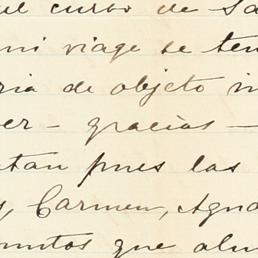 el curso de Sa
mi viage se ten
ria de objeto in
er - gracias -
tan pues las
s, Carmen, Agua
untos que alu